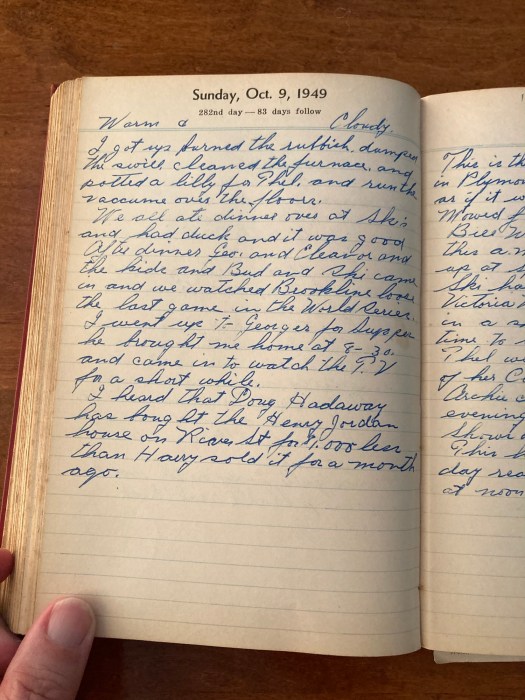 Sunday, Oct. 9, 1949
282nd day — 83 days follow
Warm & Cloudy.
I got up burned the rubbish, dumped
the swill cleaned the furnace, and
potted a lilly for Phel, and run the
vaccume over the floors.
We all ate dinner over at Ski's
and had duck and it was good
After dinner Geo, and Eleanor and
the kids and Bud and Ski came
in and we watched Brookline loose
the last game in the World Series.
I went up T- for supper
he brought me home at 9-30.
and came in to watch the T.V
for a short while.
I heard that Doug Hadaway
has bought the Henry Jordan
house on River St for $1,000 less
than Harry sold it for a month
ago.
This is th
in Plymo
as if it w
Mowed f
this a.m
up at
Ski ha
Victoria
in a s
time to
Phel w
of her C
Archie c
evening
Showt
This h
day rea
at noon